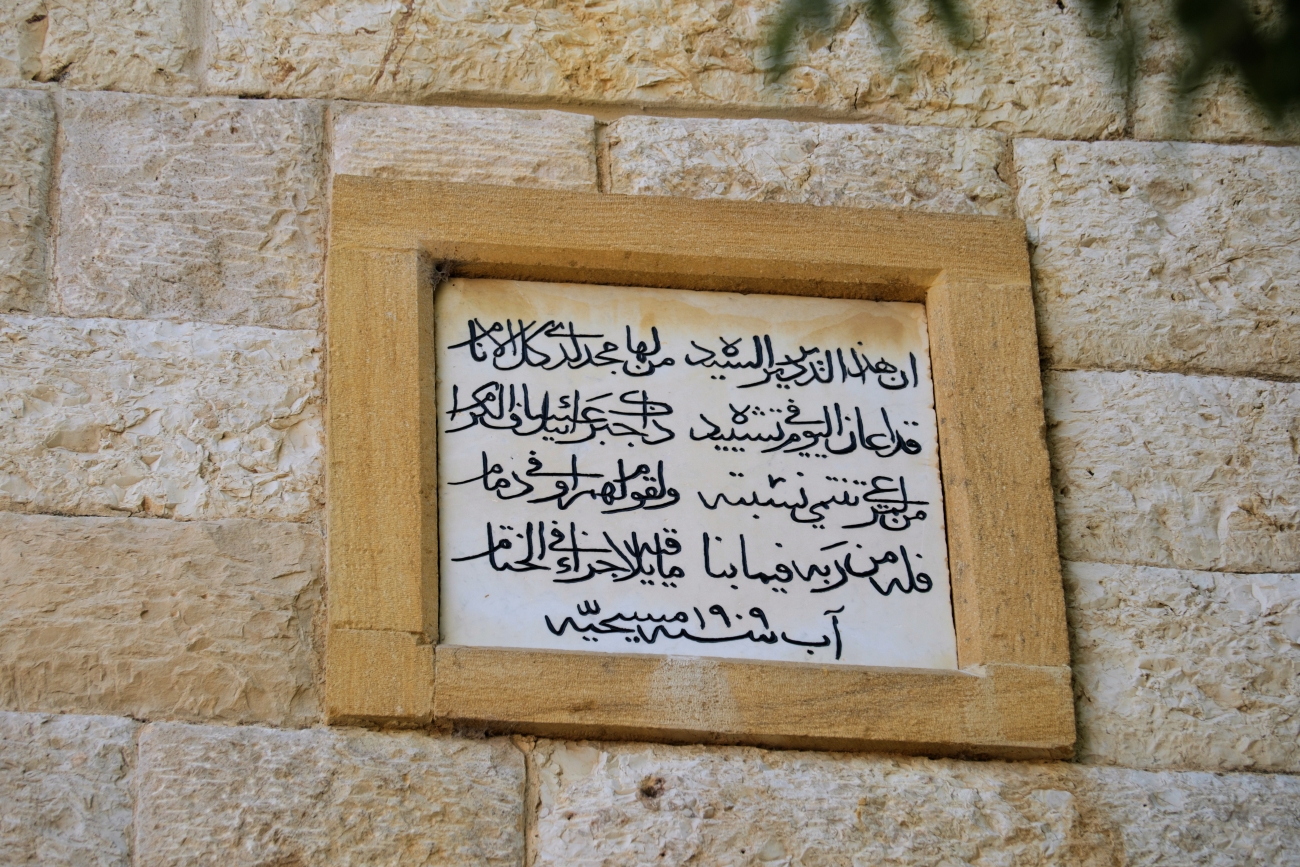 ان هذا الدير السيد من لها مجد لدى كل الانام
قد اعان اليوم في تشييده جبرائيل الكرام
من تنتمي نسبته ولقوم في دمام
فله من ربه فيما بنا ما يلاقيه جزاء في الختام
آب سنه ١٩٠٩ مسيحيّه